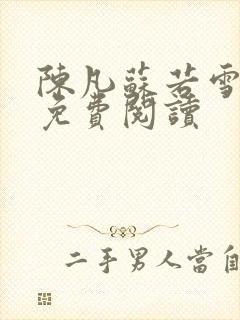 陳凡蘇若雪
免費閱讀
二手男人當自